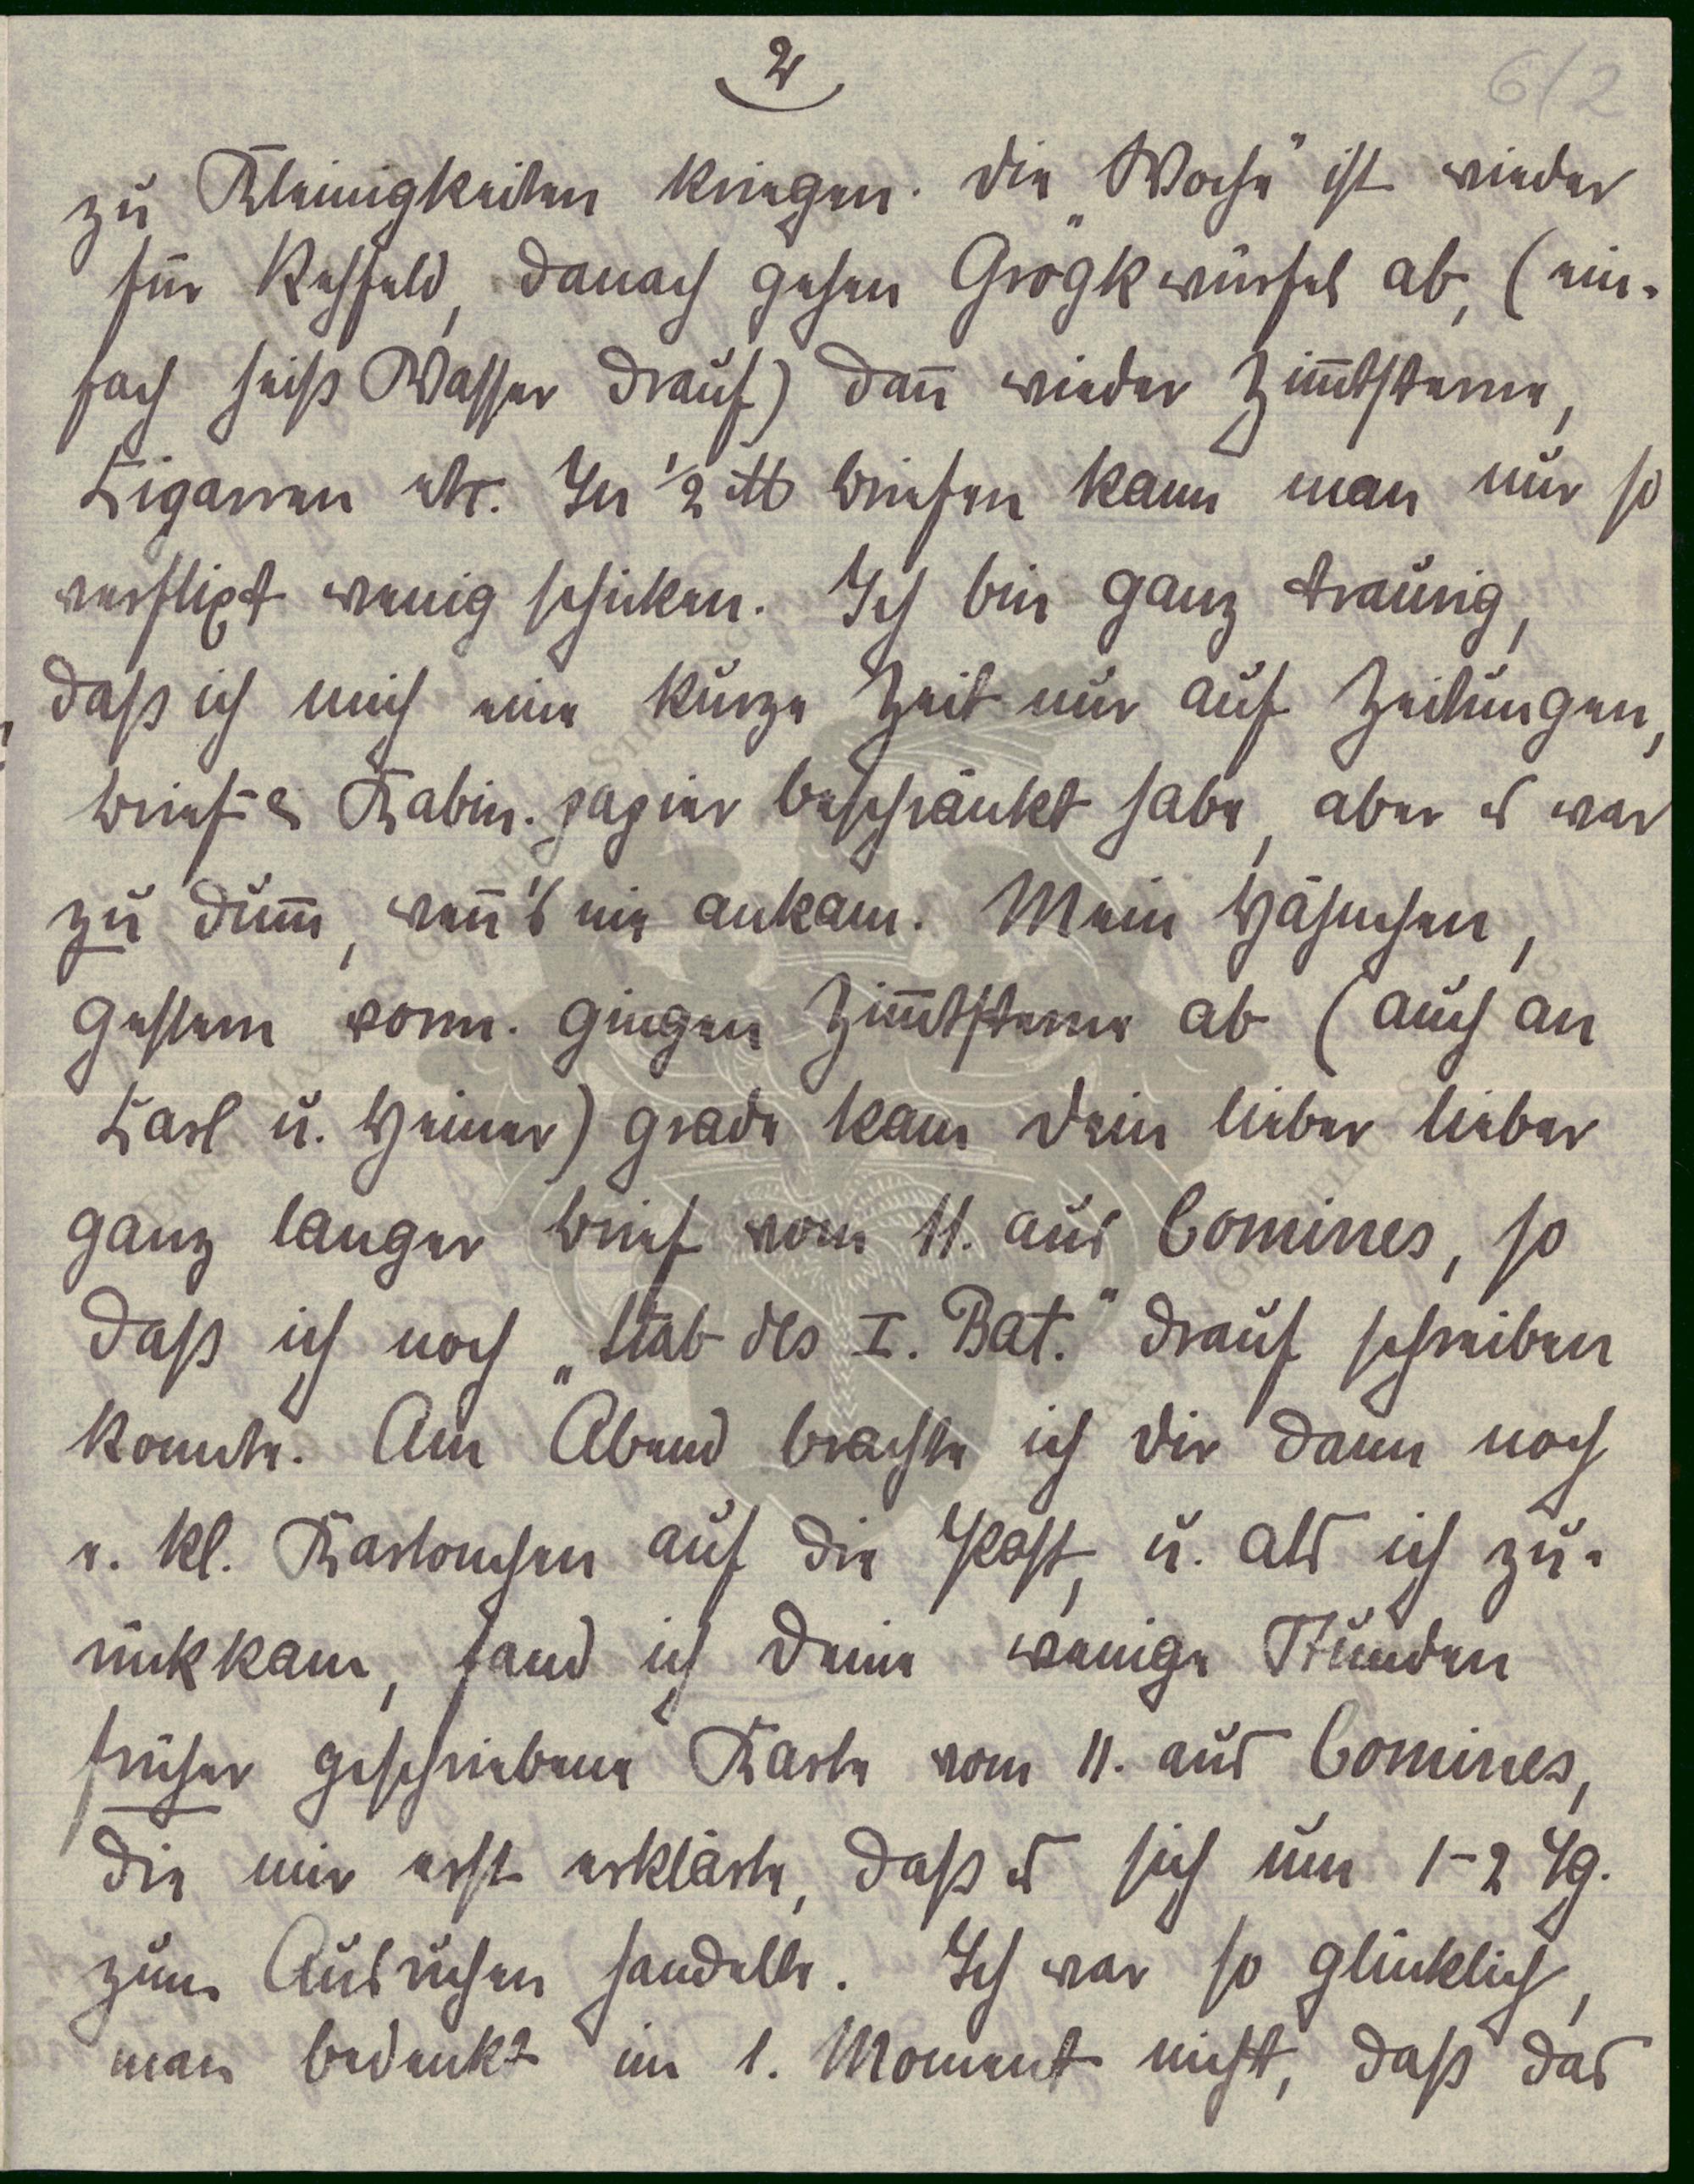 2
6/2
zu Kleinigkeiten kriegen. Die „Woche" ist wieder
für Rehfeld, danach gehen Grogkwürfel ab, (ein-
fach heiß Wasser drauf) dañ wieder Zim̃tsterne,
Cigarren etc. In 1/2 ℔ briefen kann man nur so
verflixt wenig schicken. Ich bin ganz traurig,
daß ich mich eine kurze Zeit nur auf Zeitungen,
brief- & Kabin. papier beschränkt habe, aber es war
zu dum̃, weñ's nie ankam. Mein Hähnchen,
gestern vorm. gingen Zim̃tsterne ab (auch an
Carl u. Heiner) grade kam Dein lieber lieber
ganz langer brief vom 11. aus Comines, so
daß ich noch „Stab des I. Bat." drauf schreiben
konnte. Am Abend brachte ich Dir dann noch
e. kl. Kartonchen auf die Post, u. als ich zu-
rückkam, fand ich Deine wenige Stunden
früher geschriebene Karte vom 11. aus Comines,
die mir erst erklärte, daß es sich um 1-2 Tg.
zum Ausruhen handelte. Ich war so glücklich,
man bedenkt im 1. Moment nicht, daß das